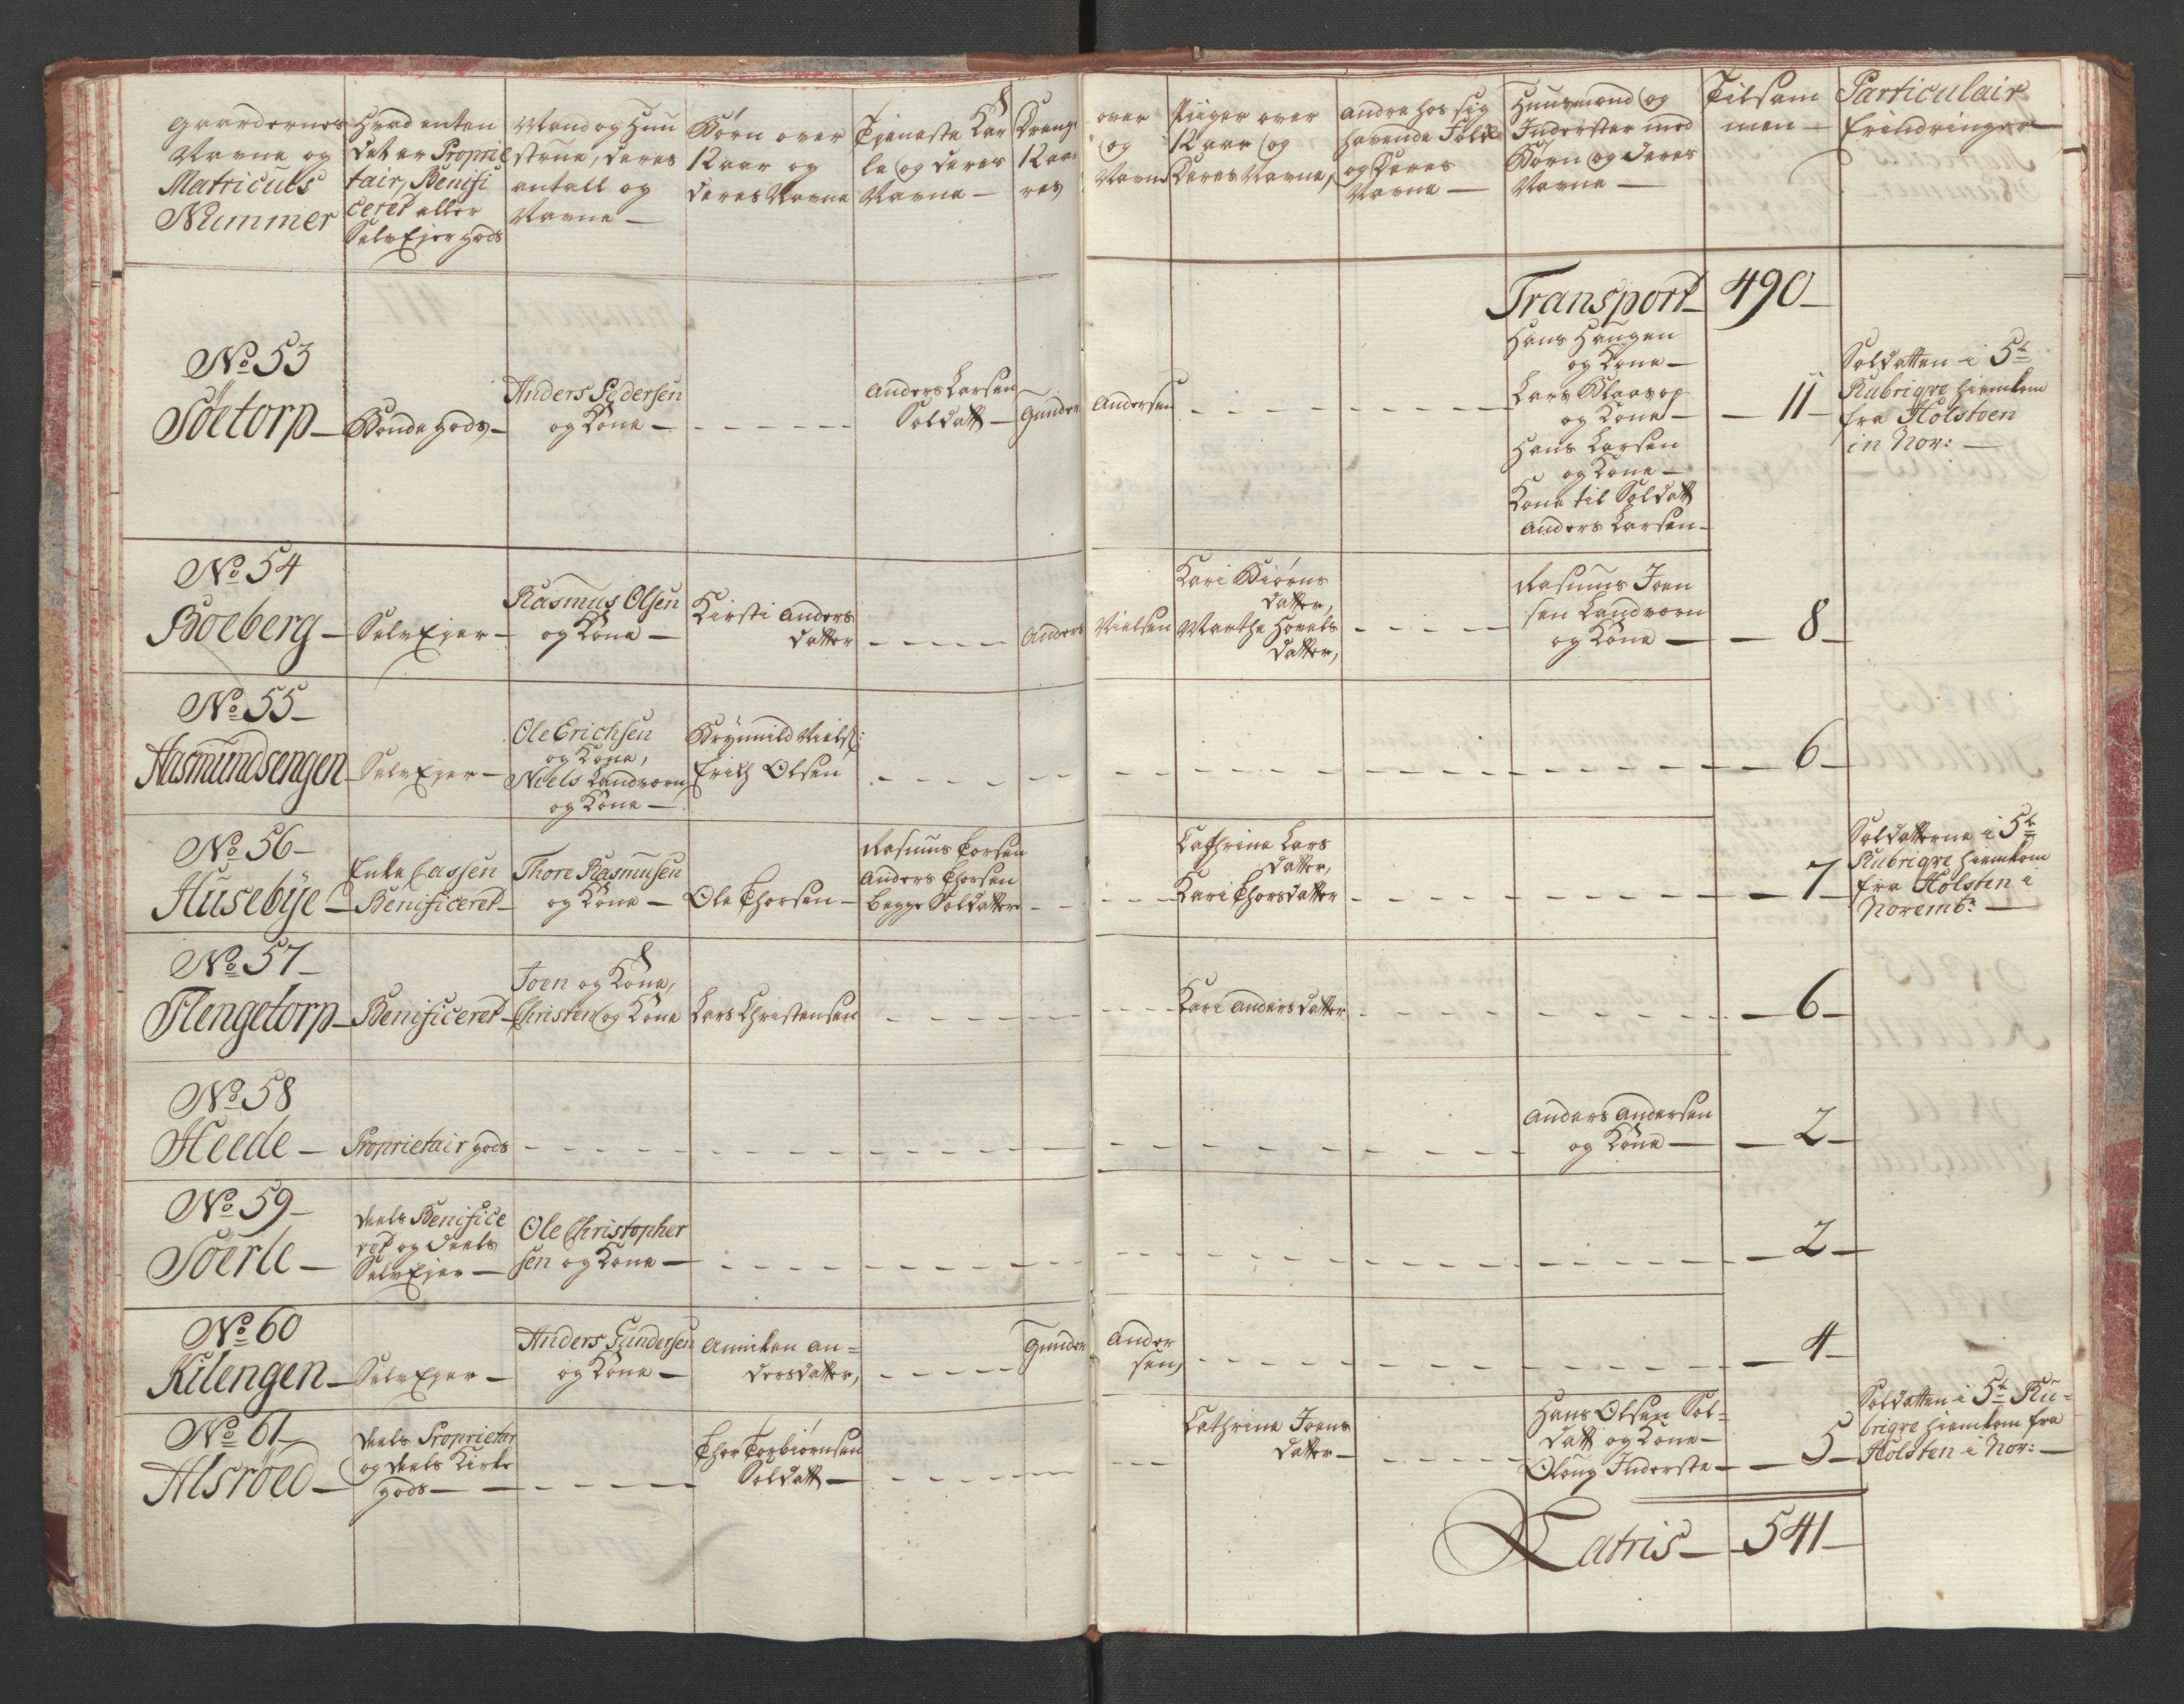 Gaardernes
Navne og
Matriculs
Nummer
Hvad enten
det er Proprie
tair, Benifi
ceret eller
SelvEjer gods
Mand og Huu
strue, deres
antall og
Navne —
Børn over
12 aar og
deres Navne
Tjeneste Kar
le og deres
Navne —
Drenge
12 aar
res
over
og
Navne
Piiger over
12 aar og
deres Navne,
andre hos sig
havende Folk
og deres
Navne —
Huusmænd og
Inderster med
Børn og deres
Navne —
Tilsam
men —
Particulair
Erindringer
Transport — 490 —
No 53
Söetorp —
Bonde gods —
Anders Pedersen
og Kone —
Anders Larsen
Soldatt —
Gunder
Andersen
Hans Haugen
og Kone —
Lars Klaavop
og Kone —
Hans Larsen
og Kone —
Kone til Soldatt
Anders Larsen —
11 —
Soldatten i 5te
Rubrique hiemkom
fra Holsteen
in Nov: —
No 54
Boeberg —
SelvEjer —
Rasmus Olsen
og Kone —
Kirsti Anders
datter
Anders
Nielsen
Kari Biørns
datter,
Marthe Hovels
datter,
Rasmus Joen
sen Landvorn
og Kone —
8 —
No 55 —
Aasmundsengen —
SelvEjer —
Ole Erichsen
og Kone,
Niels Landvorn
og Kone —
Brynnild Niels:
Erich Olsen
6 —
No 56 —
Husebÿe —
Enke Cassen
Benificeret —
Thore Rasmusen
og Kone —
Ole Thorsen —
Rasmus Torsen
Anders Thorsen
begge Soldatter
Cathrine Lars
datter,
Kari Thorsdatter
7 —
Soldatterne i 5te
Rubrique hiemkom
fra Holsten i
Novembr —
No 57 —
Flengetorp —
Benificeret —
Joen og Kone,
Christen og Kone
Lars Christensen
Kari Andersdatter
6 —
No 58
Heede —
Proprietair gods
Anders Andersen
og Kone —
2 —
No 59 —
Söerle —
deels Benifice
ret og deels
SelvEjer —
Ole Christopher
sen og Kone —
2 —
No 60
Kilengen —
SelvEjer —
Anders Gundersen
og Kone —
Anniken An=
dersdatter,
Gunder
Ander
sen,
4 —
No 61 —
Alsröed —
deels Proprietar
og deels Kirke
gods —
Thor Torbiørnsen
Soldatt —
Cathrine Joens
datter —
Hans Olsen Sol=
datt og Kone —
Oloug Inderste —
5 —
Soldatten i 5te Ru=
brique hiemkom fra
Holsten i Nov: —
Latris — 541 —